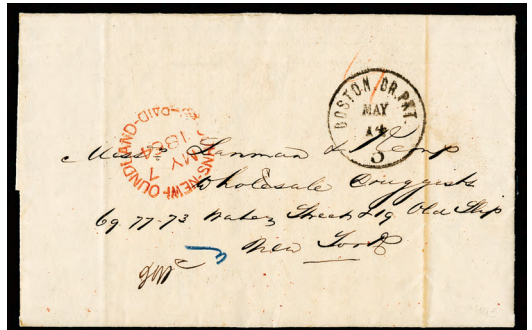 BOSTON. BR. PKT.
MAY
14
5
ST JOHNS-NEWFOUNDLAND-PAID
MY 7
1864
Messrs Lanman & Kemp
Wholesale Druggists
69 77-73 Water Street & 9 Old Slip
New York